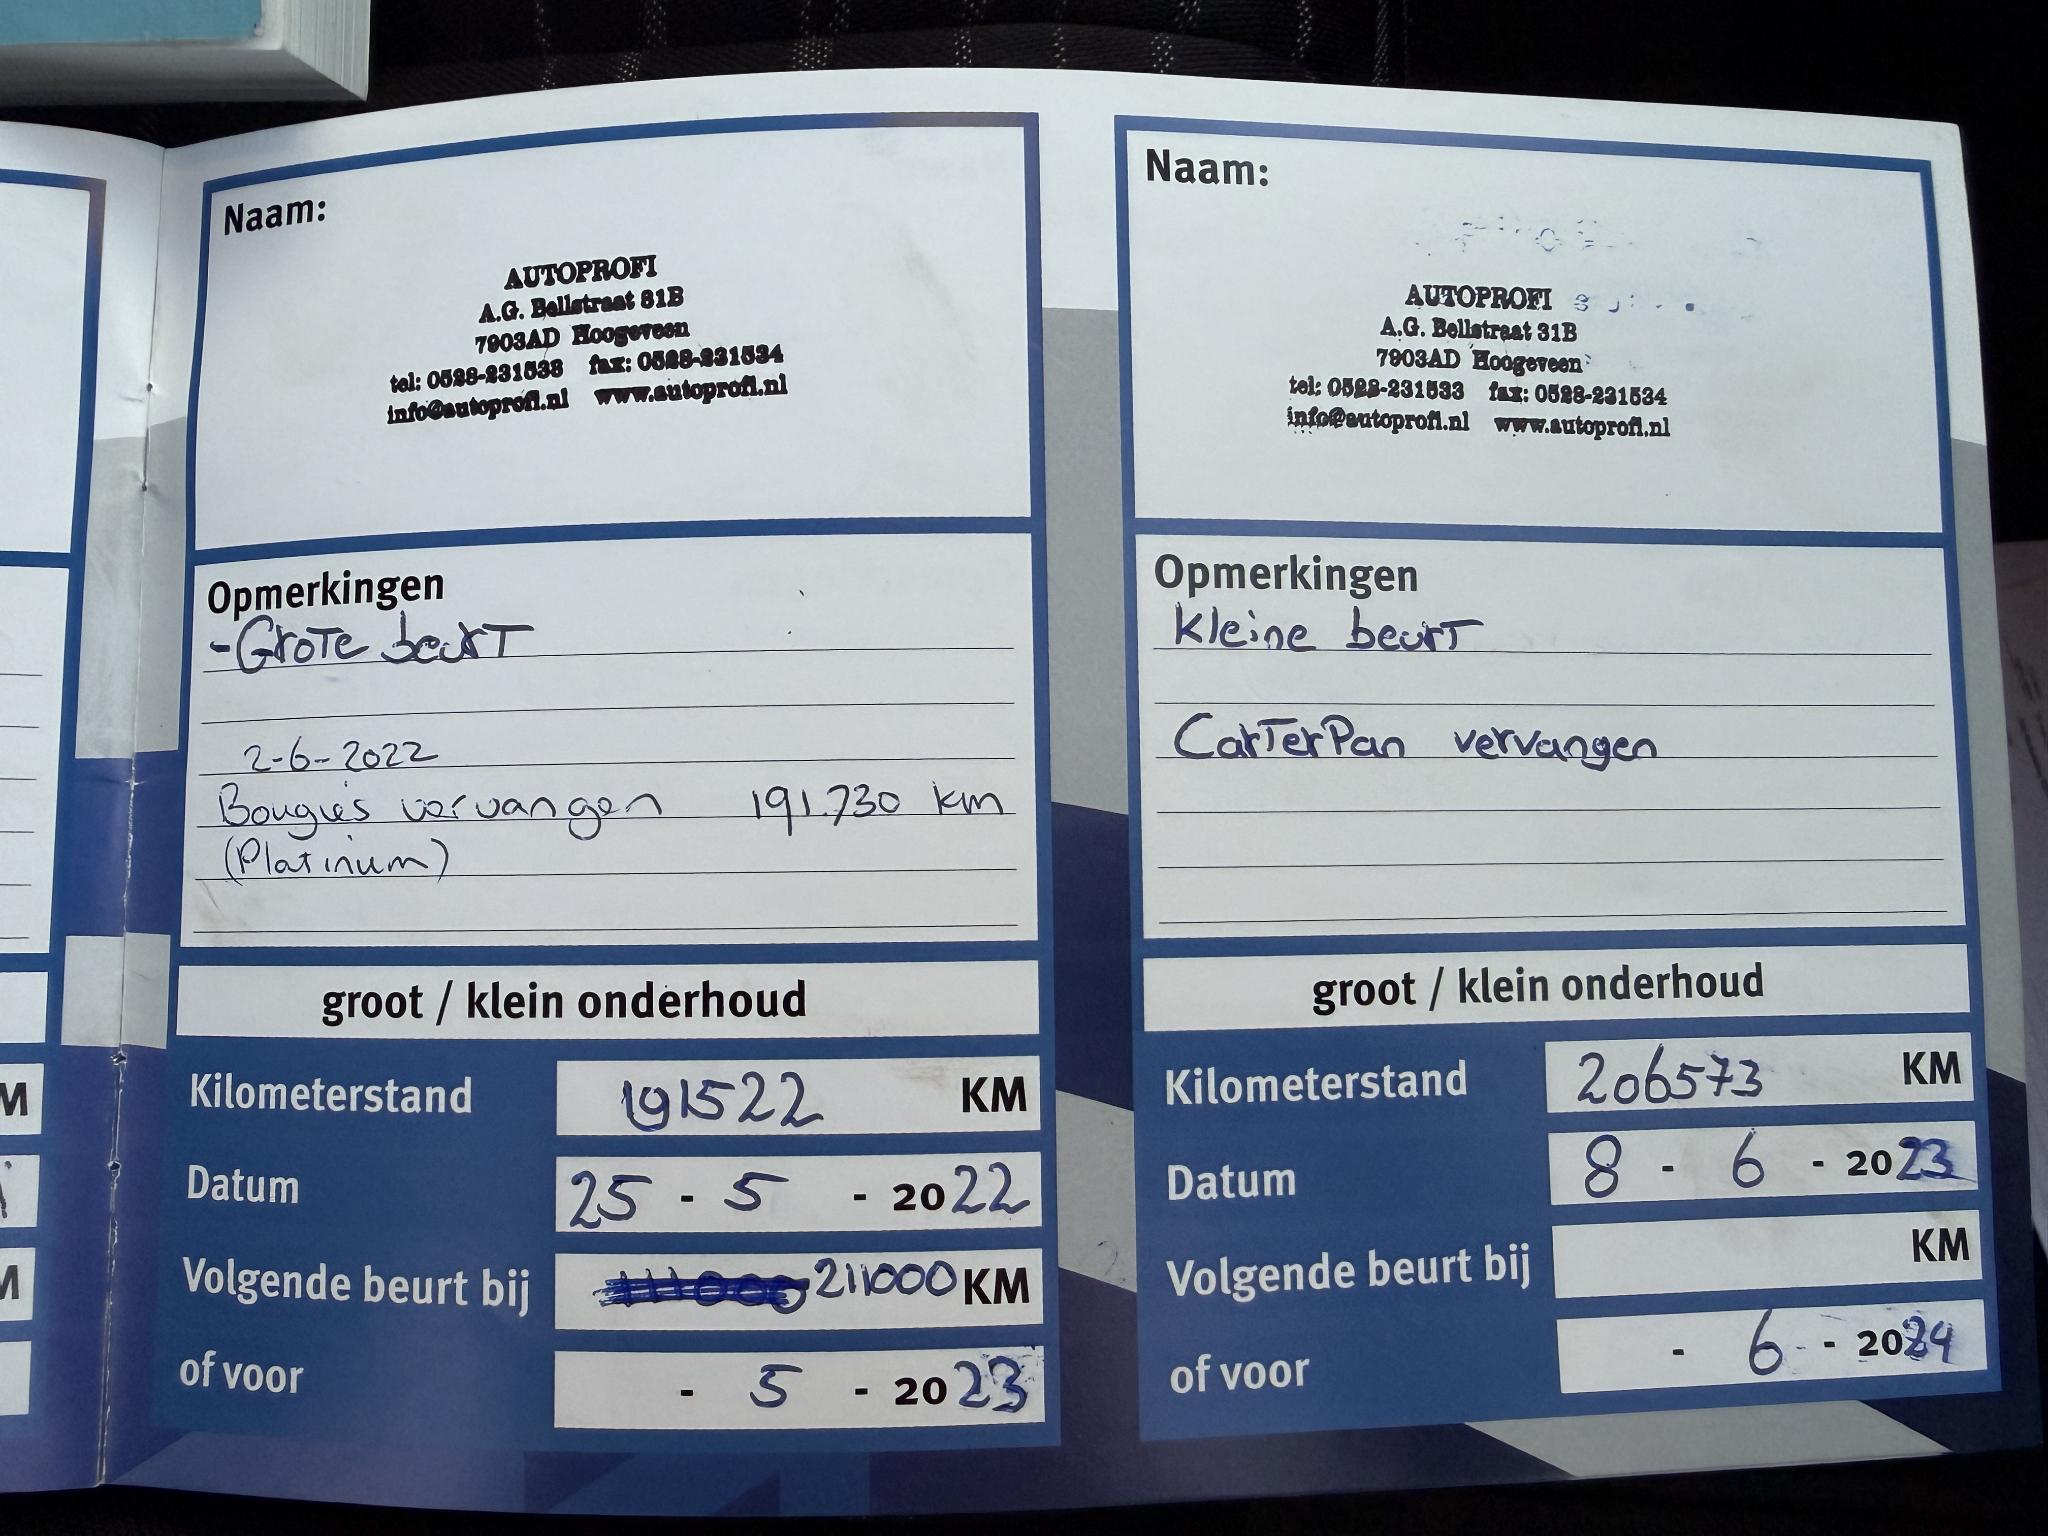 Naam:
AUTOPROFI
A.G. Bellstraat 31B
7903AD Hoogeveen
tel: 0528-231533 fax: 0528-231534
info@autoprofi.nl www.autoprofi.nl
Opmerkingen
-Grote beurt
2-6-2022
Bougies vervangen 191.730 km
(Platinum)
groot / klein onderhoud
Kilometerstand 191522 KM
Datum 25 - 5 - 2022
Volgende beurt bij 211000 KM
of voor - 5 - 2023
Naam:
AUTOPROFI
A.G. Bellstraat 31B
7903AD Hoogeveen
tel: 0528-231533 fax: 0528-231534
info@autoprofi.nl www.autoprofi.nl
Opmerkingen
Kleine beurt
CarterPan vervangen
groot / klein onderhoud
Kilometerstand 206573 KM
Datum 8 - 6 - 2023
Volgende beurt bij KM
of voor - 6 - 2024
M
M